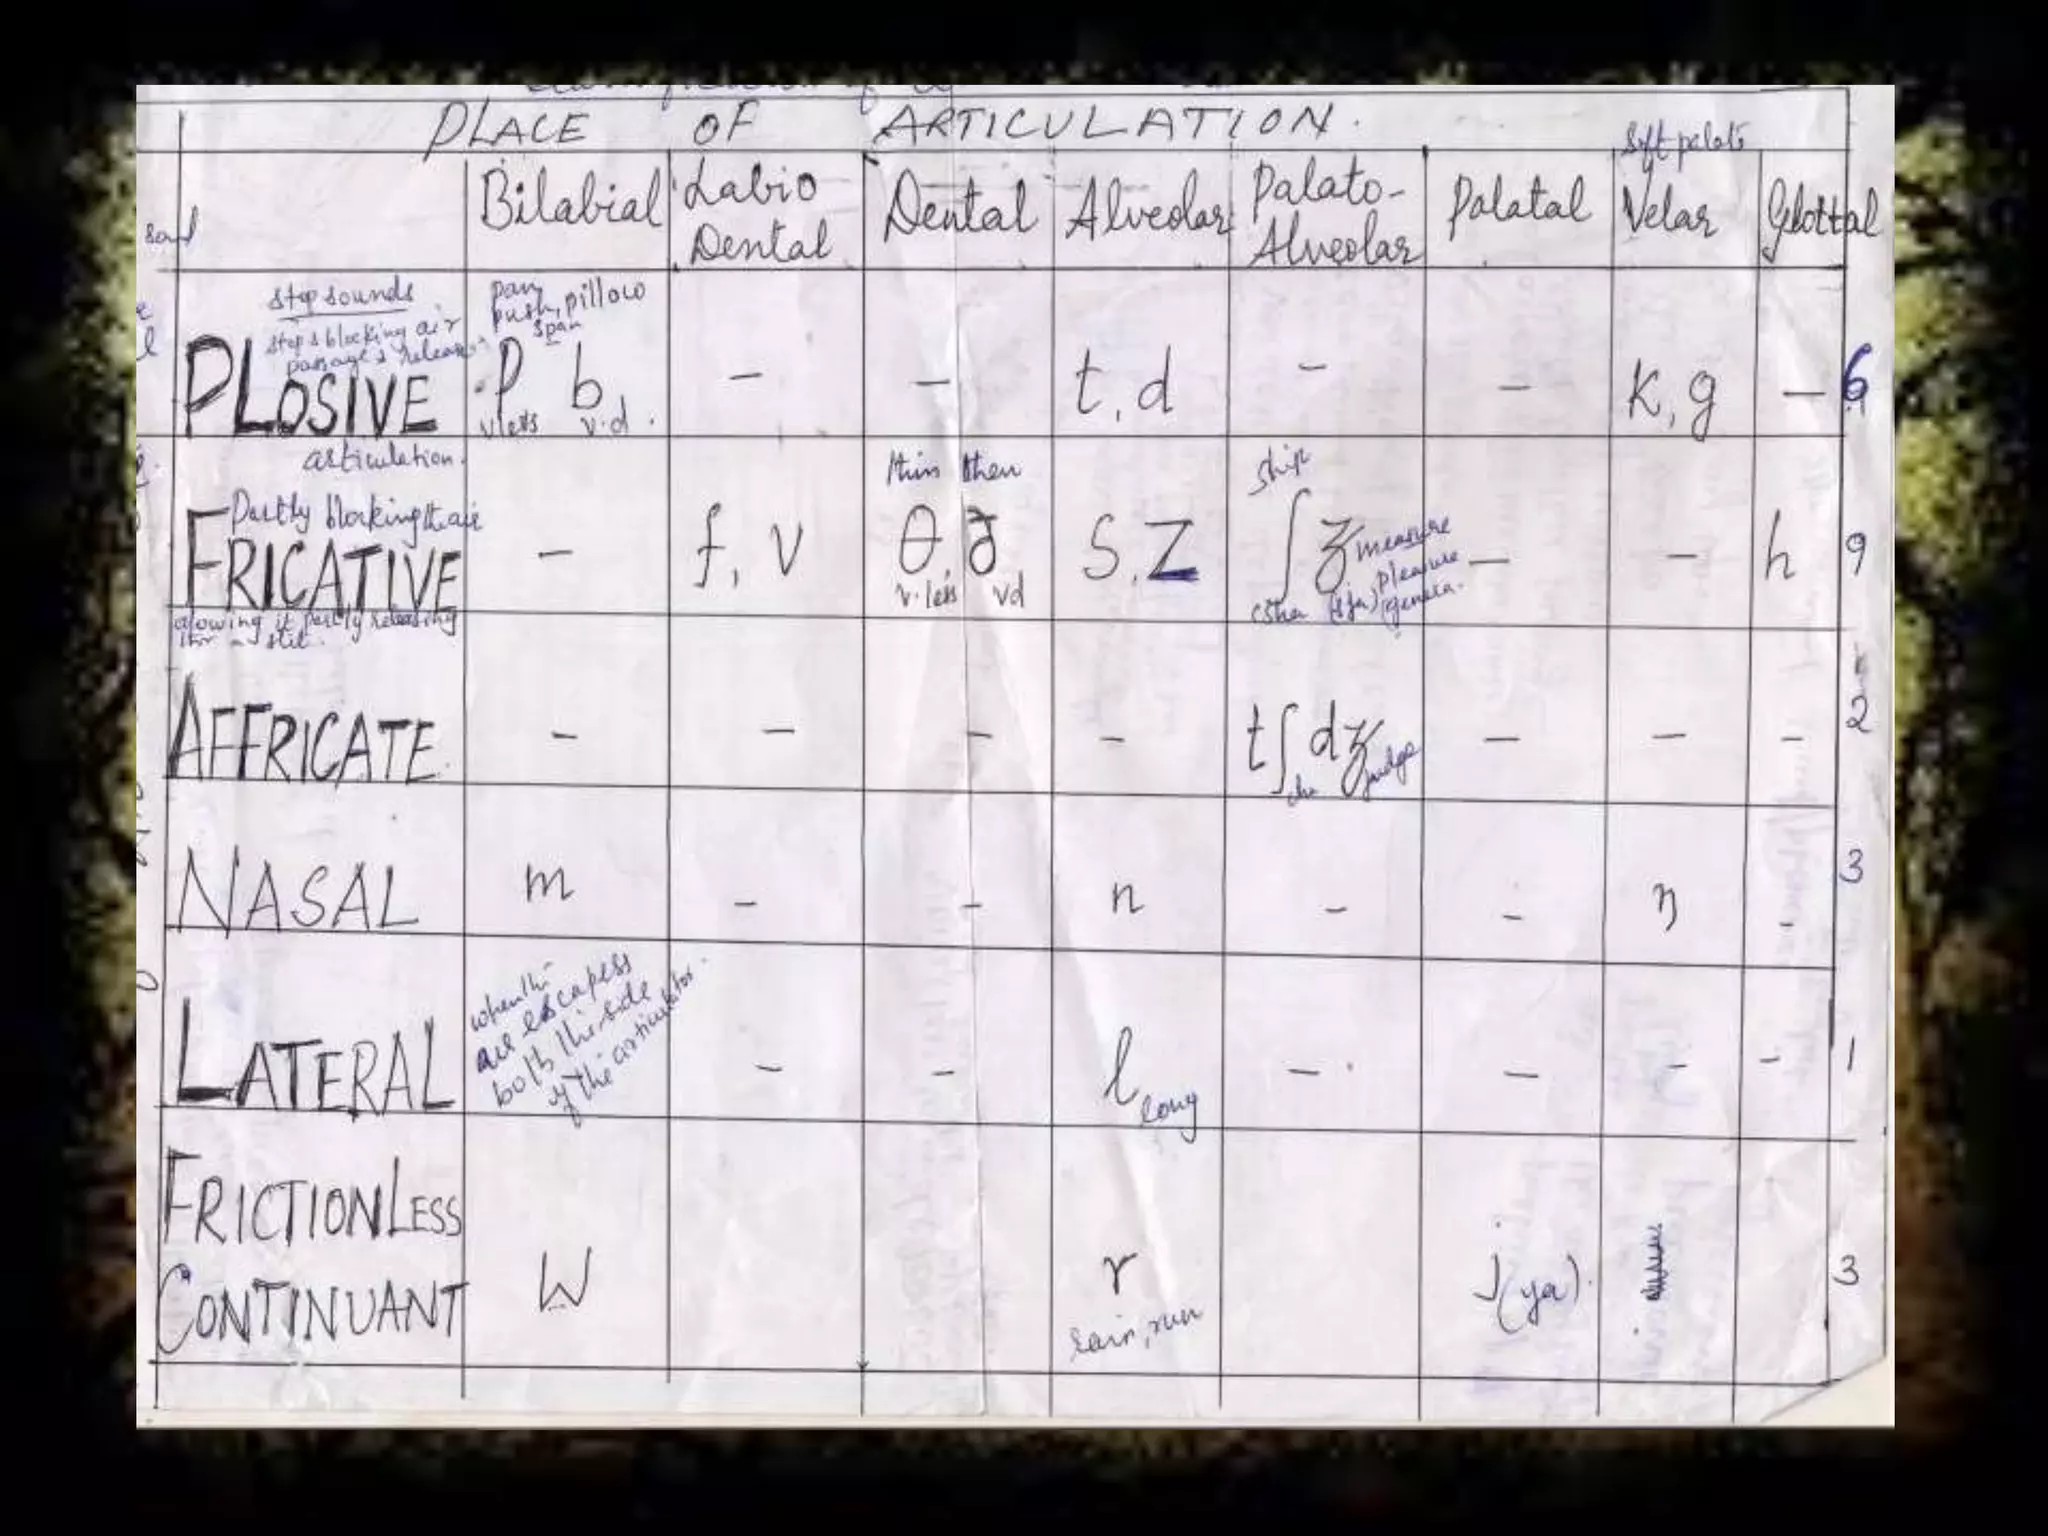 PLACE OF ARTICULATION.
soft palate
Bilabial Labio Dental Dental Alveolar Palato-Alveolar Palatal Velar Glottal
sound
stop sounds
stops blocking air
passage & release
PLOSIVE
articulation.
pan
push, pillow
span
p b
vless v.d.
- - t, d - - k, g - 6
Partly blocking the air
FRICATIVE
allowing it partly releasing
thr a slit.
- f, v
thin then
θ, ð
v.less vd
s, z
ship
ʃ ʒ measure
pleasure
- - h 9
AFFRICATE - - - - tʃ dʒ judge - - - 2
NASAL m - - n - - ŋ - 3
LATERAL
when the
air escapes
both the side
of the articulator.
- - l long - - - - 1
FRICTIONLESS
CONTINUANT w r j (ya) 3
rain, run